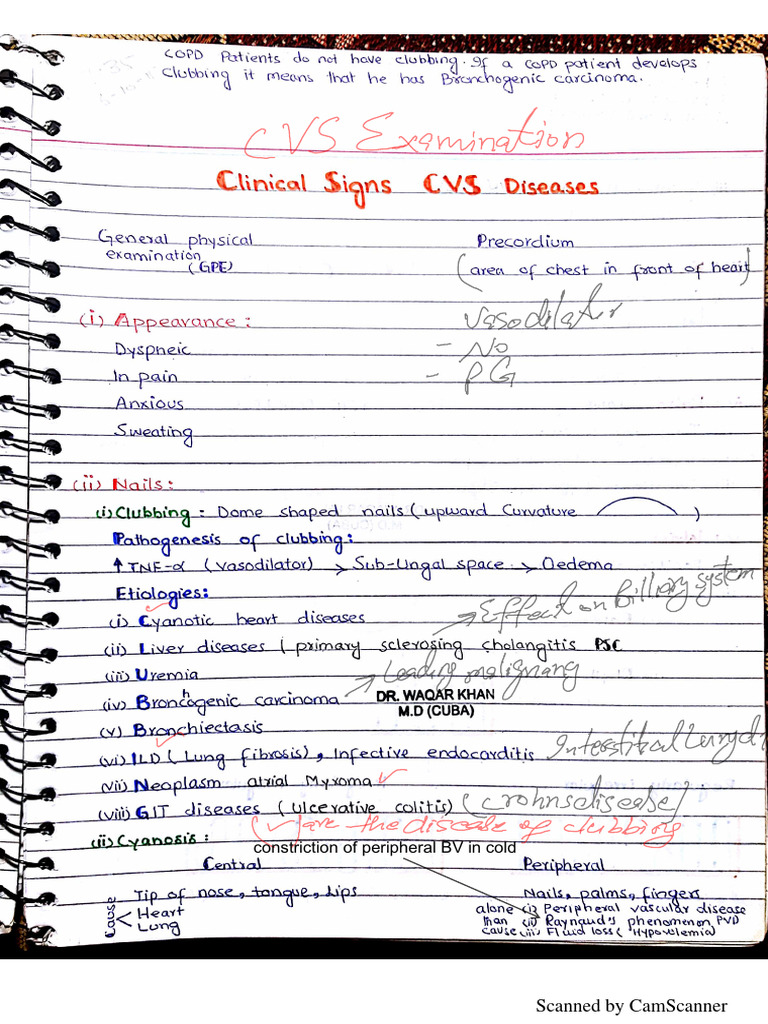 COPD Patients do not have clubbing. If a COPD patient develops
Clubbing it means that he has Bronchogenic carcinoma.
CVS Examination
Clinical Signs CVS Diseases
General physical
examination
(GPE)
Precordium
(area of chest in front of heart)
(i) Appearance:
Vasodilator
Dyspneic
- No
In pain
- PG
Anxious
Sweating
(ii) Nails:
(i) Clubbing: Dome shaped nails (upward Curvature )
Pathogenesis of clubbing:
↑TNF-α (vasodilator) → Sub-Ungal space → Oedema
Etiologies:
(i) Cyanotic heart diseases → Effect on Billiary system
(ii) Liver diseases (primary sclerosing cholangitis PSC
(iii) Uremia
→ Leading malignang
(iv) Broncogenic carcinoma
h
DR. WAQAR KHAN
M.D (CUBA)
(v) Bronchiectasis
(vi) ILD (Lung fibrosis), Infective endocarditis Interstitial Lung di
(vii) Neoplasm atrial Myxoma ✓
(viii) GIT diseases (ulcerative colitis) (crohns disease)
(✓) are the disease of clubbing
(ii) Cyanosis:
constriction of peripheral BV in cold
Central
Peripheral
Tip of nose, tongue, Lips
Nails, palms, fingers
Cause
Heart
Lung
alone (i) Peripheral vascular disease
than (ii) Raynaud's phenomenon PVD
cause (iii) Fluid loss (Hypovolemia)
Scanned by CamScanner